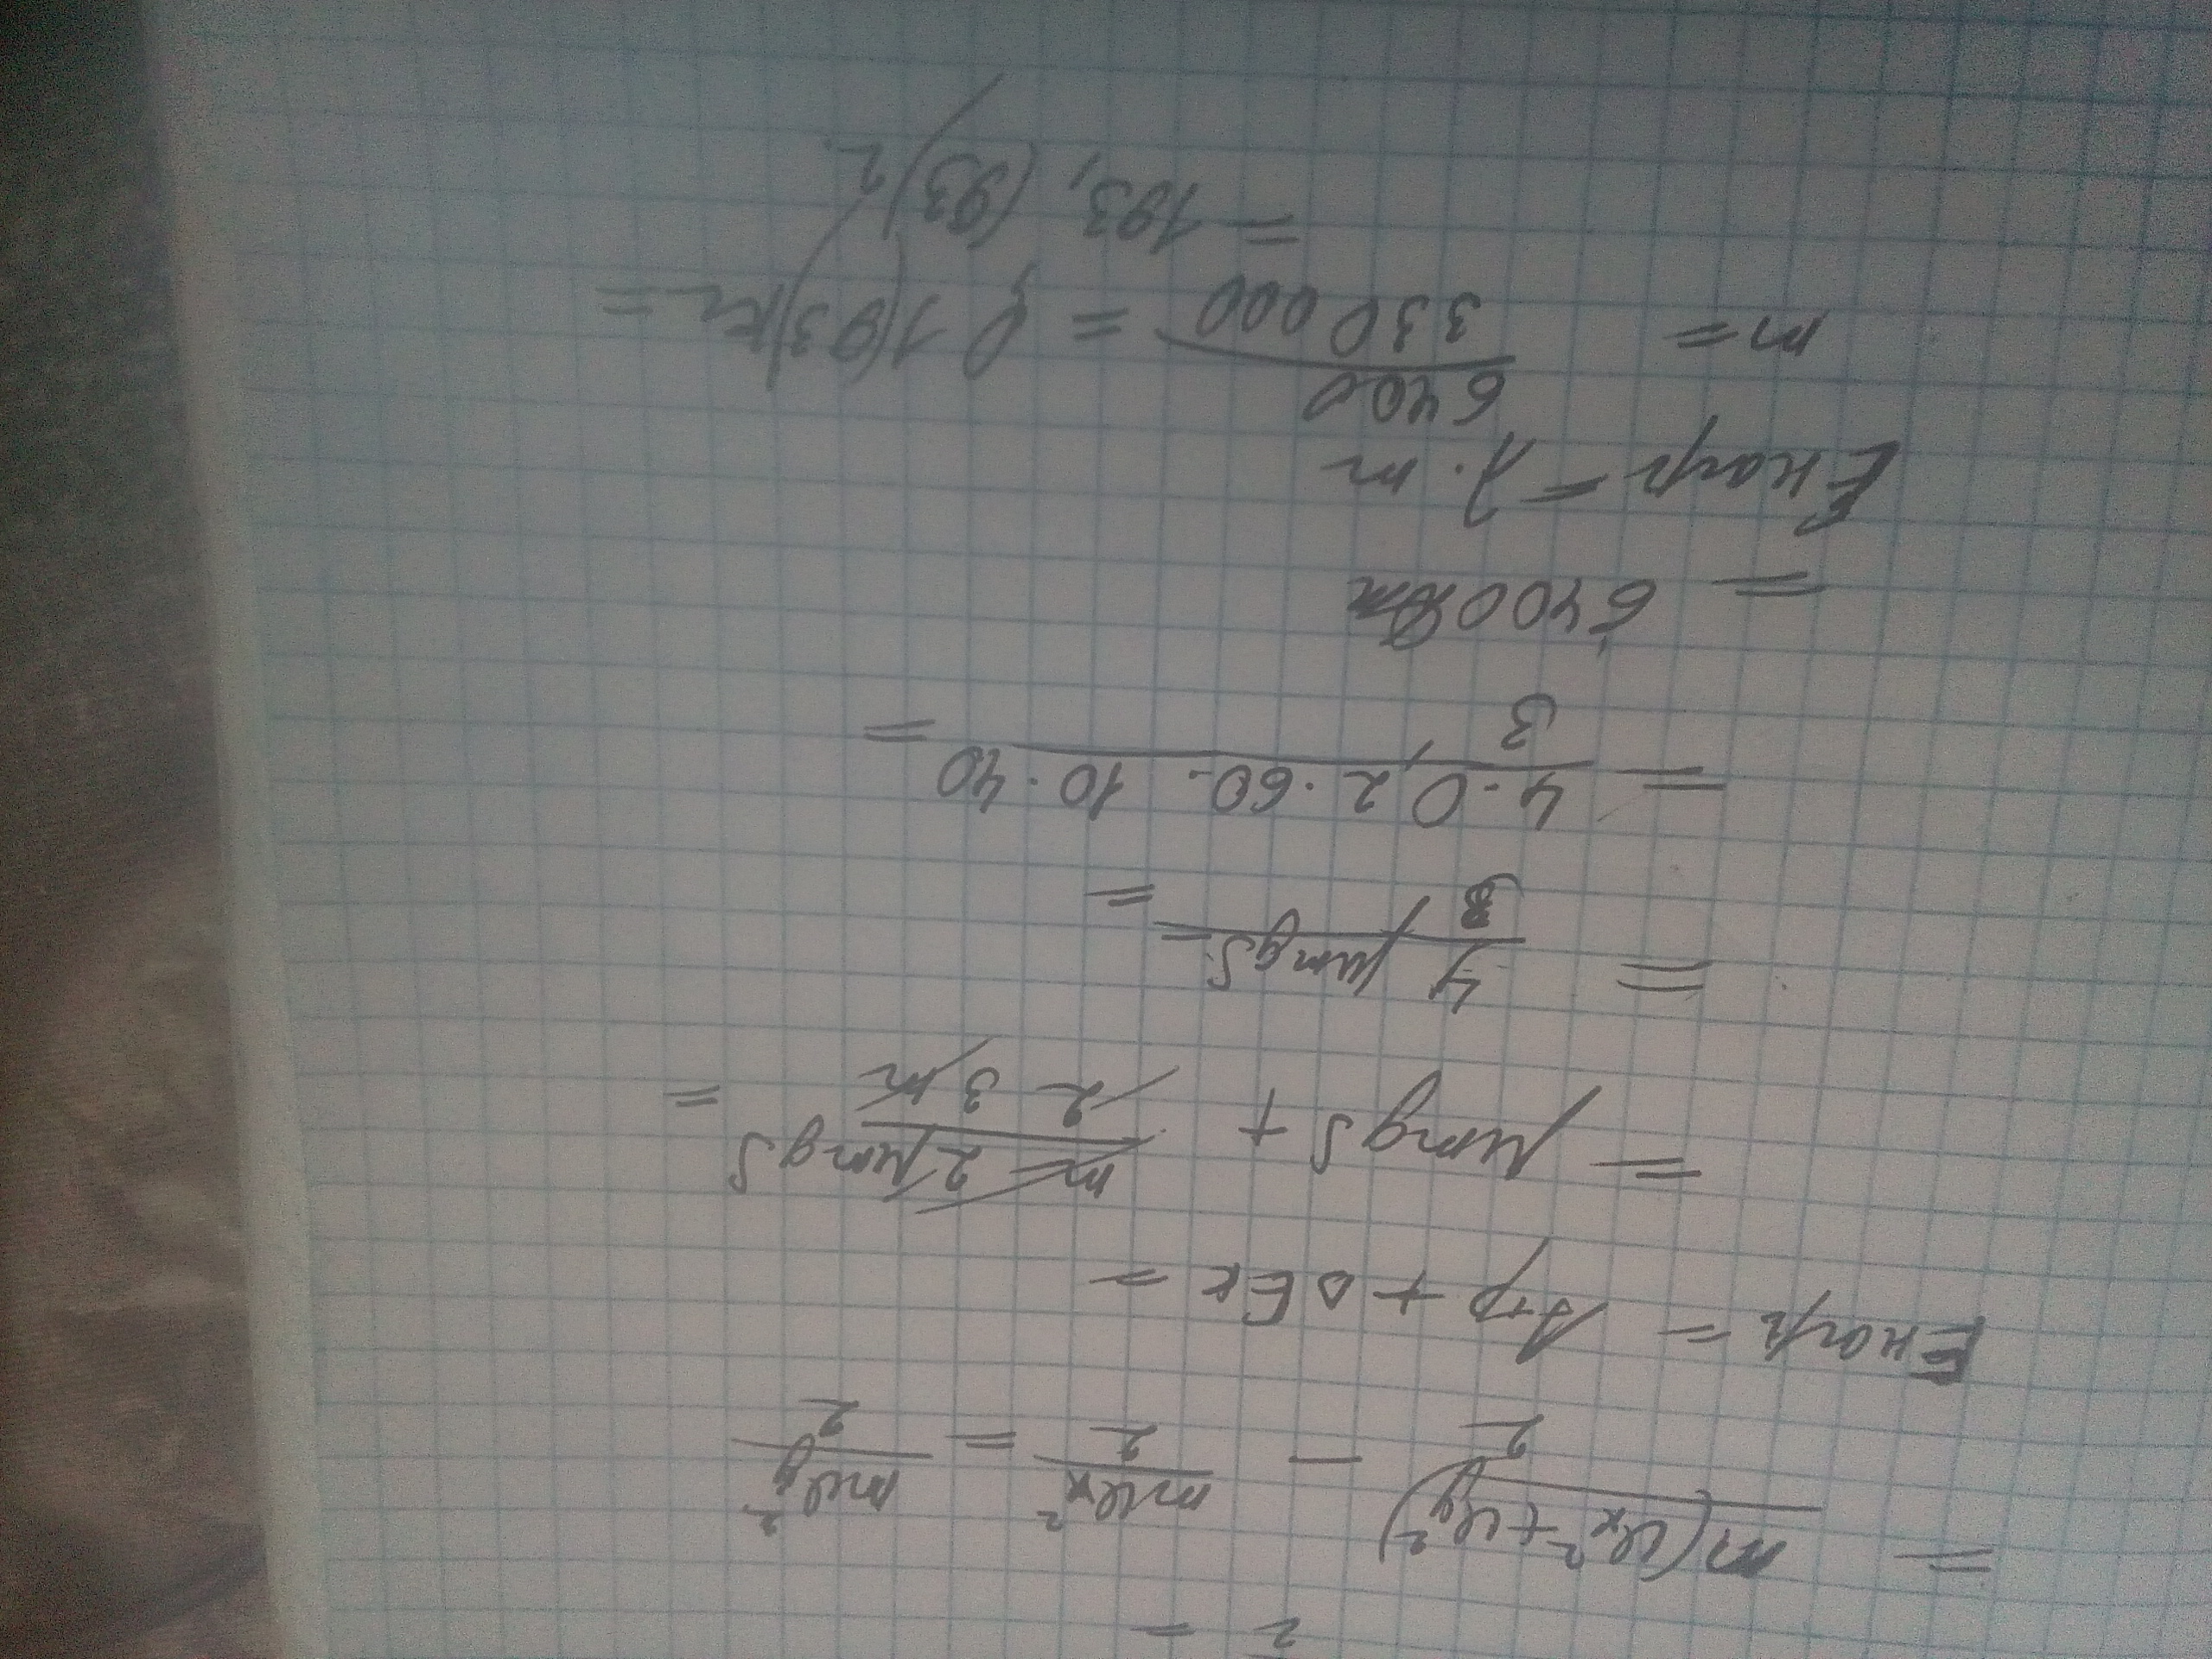 2 =
= m(υx² + υy²)/2 − mυx²/2 = mυy²/2
Eнагр = Aтр + ΔEк =
= μmgS + m 2μmgS / 2 3m =
= 4 μmgS / 3 =
= 4·0,2·60·10·40 / 3 =
= 6400 Дж
Eнагр = λ·m
m = 6400/330000 = 0,1(93) кг =
= 193,(93) г.